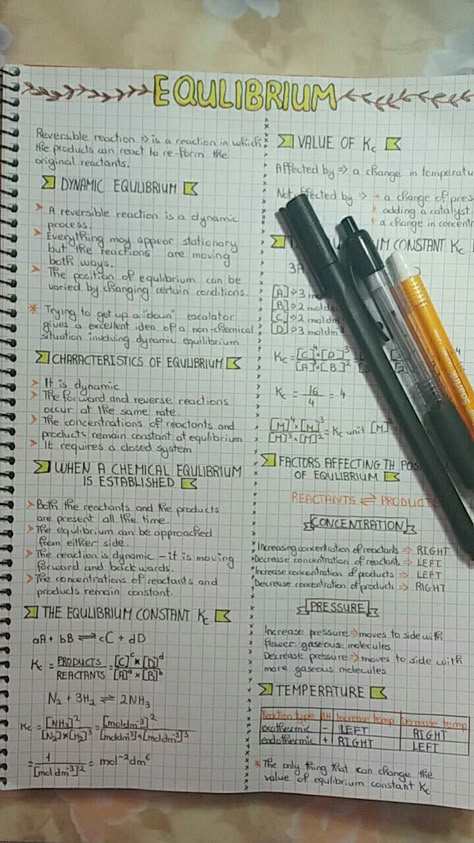 EQULIBRIUM
Reversible reaction => is a reaction in which
the products can react to re-form the
original reactants.
DYNAMIC EQULIBRIUM
A reversible reaction is a dynamic
process.
Everything may appear stationary
but the reactions are moving
both ways.
The position of equilibrium can be
varied by changing certain conditions.
* Trying to get up a "down" escalator
gives a excellent idea of a non-chemical
situation involving dynamic equilibrium
CHARACTERISTICS OF EQULIBRIUM
It is dynamic
The forward and reverse reactions
occur at the same rate.
The concentrations of reactants and
products remain constant at equlibrium
It requires a closed system
WHEN A CHEMICAL EQULIBRIUM
IS ESTABLISHED
Both the reactants and the products
are present all the time.
The equlibrium can be approached
from either side.
The reaction is dynamic - it is moving
forward and backwards.
The concentrations of reactants and
products remain constant.
THE EQULIBRIUM CONSTANT Kc
aA + bB ⇌ cC + dD
Kc = PRODUCTS / REACTANTS = [C]^c × [D]^d / [A]^a × [B]^b
N2 + 3H2 ⇌ 2NH3
Kc = [NH3]^2 / [N2]×[H2]^3 = [moldm^-3]^2 / [moldm^-3]×[moldm^-3]^3
= 1 / [moldm^-3]^2 = mol^-2 dm^6
VALUE OF Kc
Affected by => a change in temperatu
Not affected by => * a change of pres
* adding a catalyst
* a change in concent
UM CONSTANT Kc
3A
[A] => 3 m
[A] => 2 moldm
[C] => 2 moldm
[D] => 3 moldm
Kc =
Kc = 16 / 4 = 4
= Kc unit
FACTORS AFFECTING TH POS
OF EQULIBRIUM
REACTANTS ⇌ PRODUCT
CONCENTRATION
* Increasing concentration of reactants => RIGHT
* Decrease concentration of reactants => LEFT
* Increase concentration of products => LEFT
Decrease concentration of products => RIGHT
PRESSURE
Increase pressure => moves to side with
fewer gaseous molecules
Decrease pressure => moves to side with
more gaseous molecules.
TEMPERATURE
Reaction type ΔH Increase temp Decrease temp
exothermic - LEFT RIGHT
endothermic + RIGHT LEFT
* The only thing that can change the
value of equlibrium constant Kc